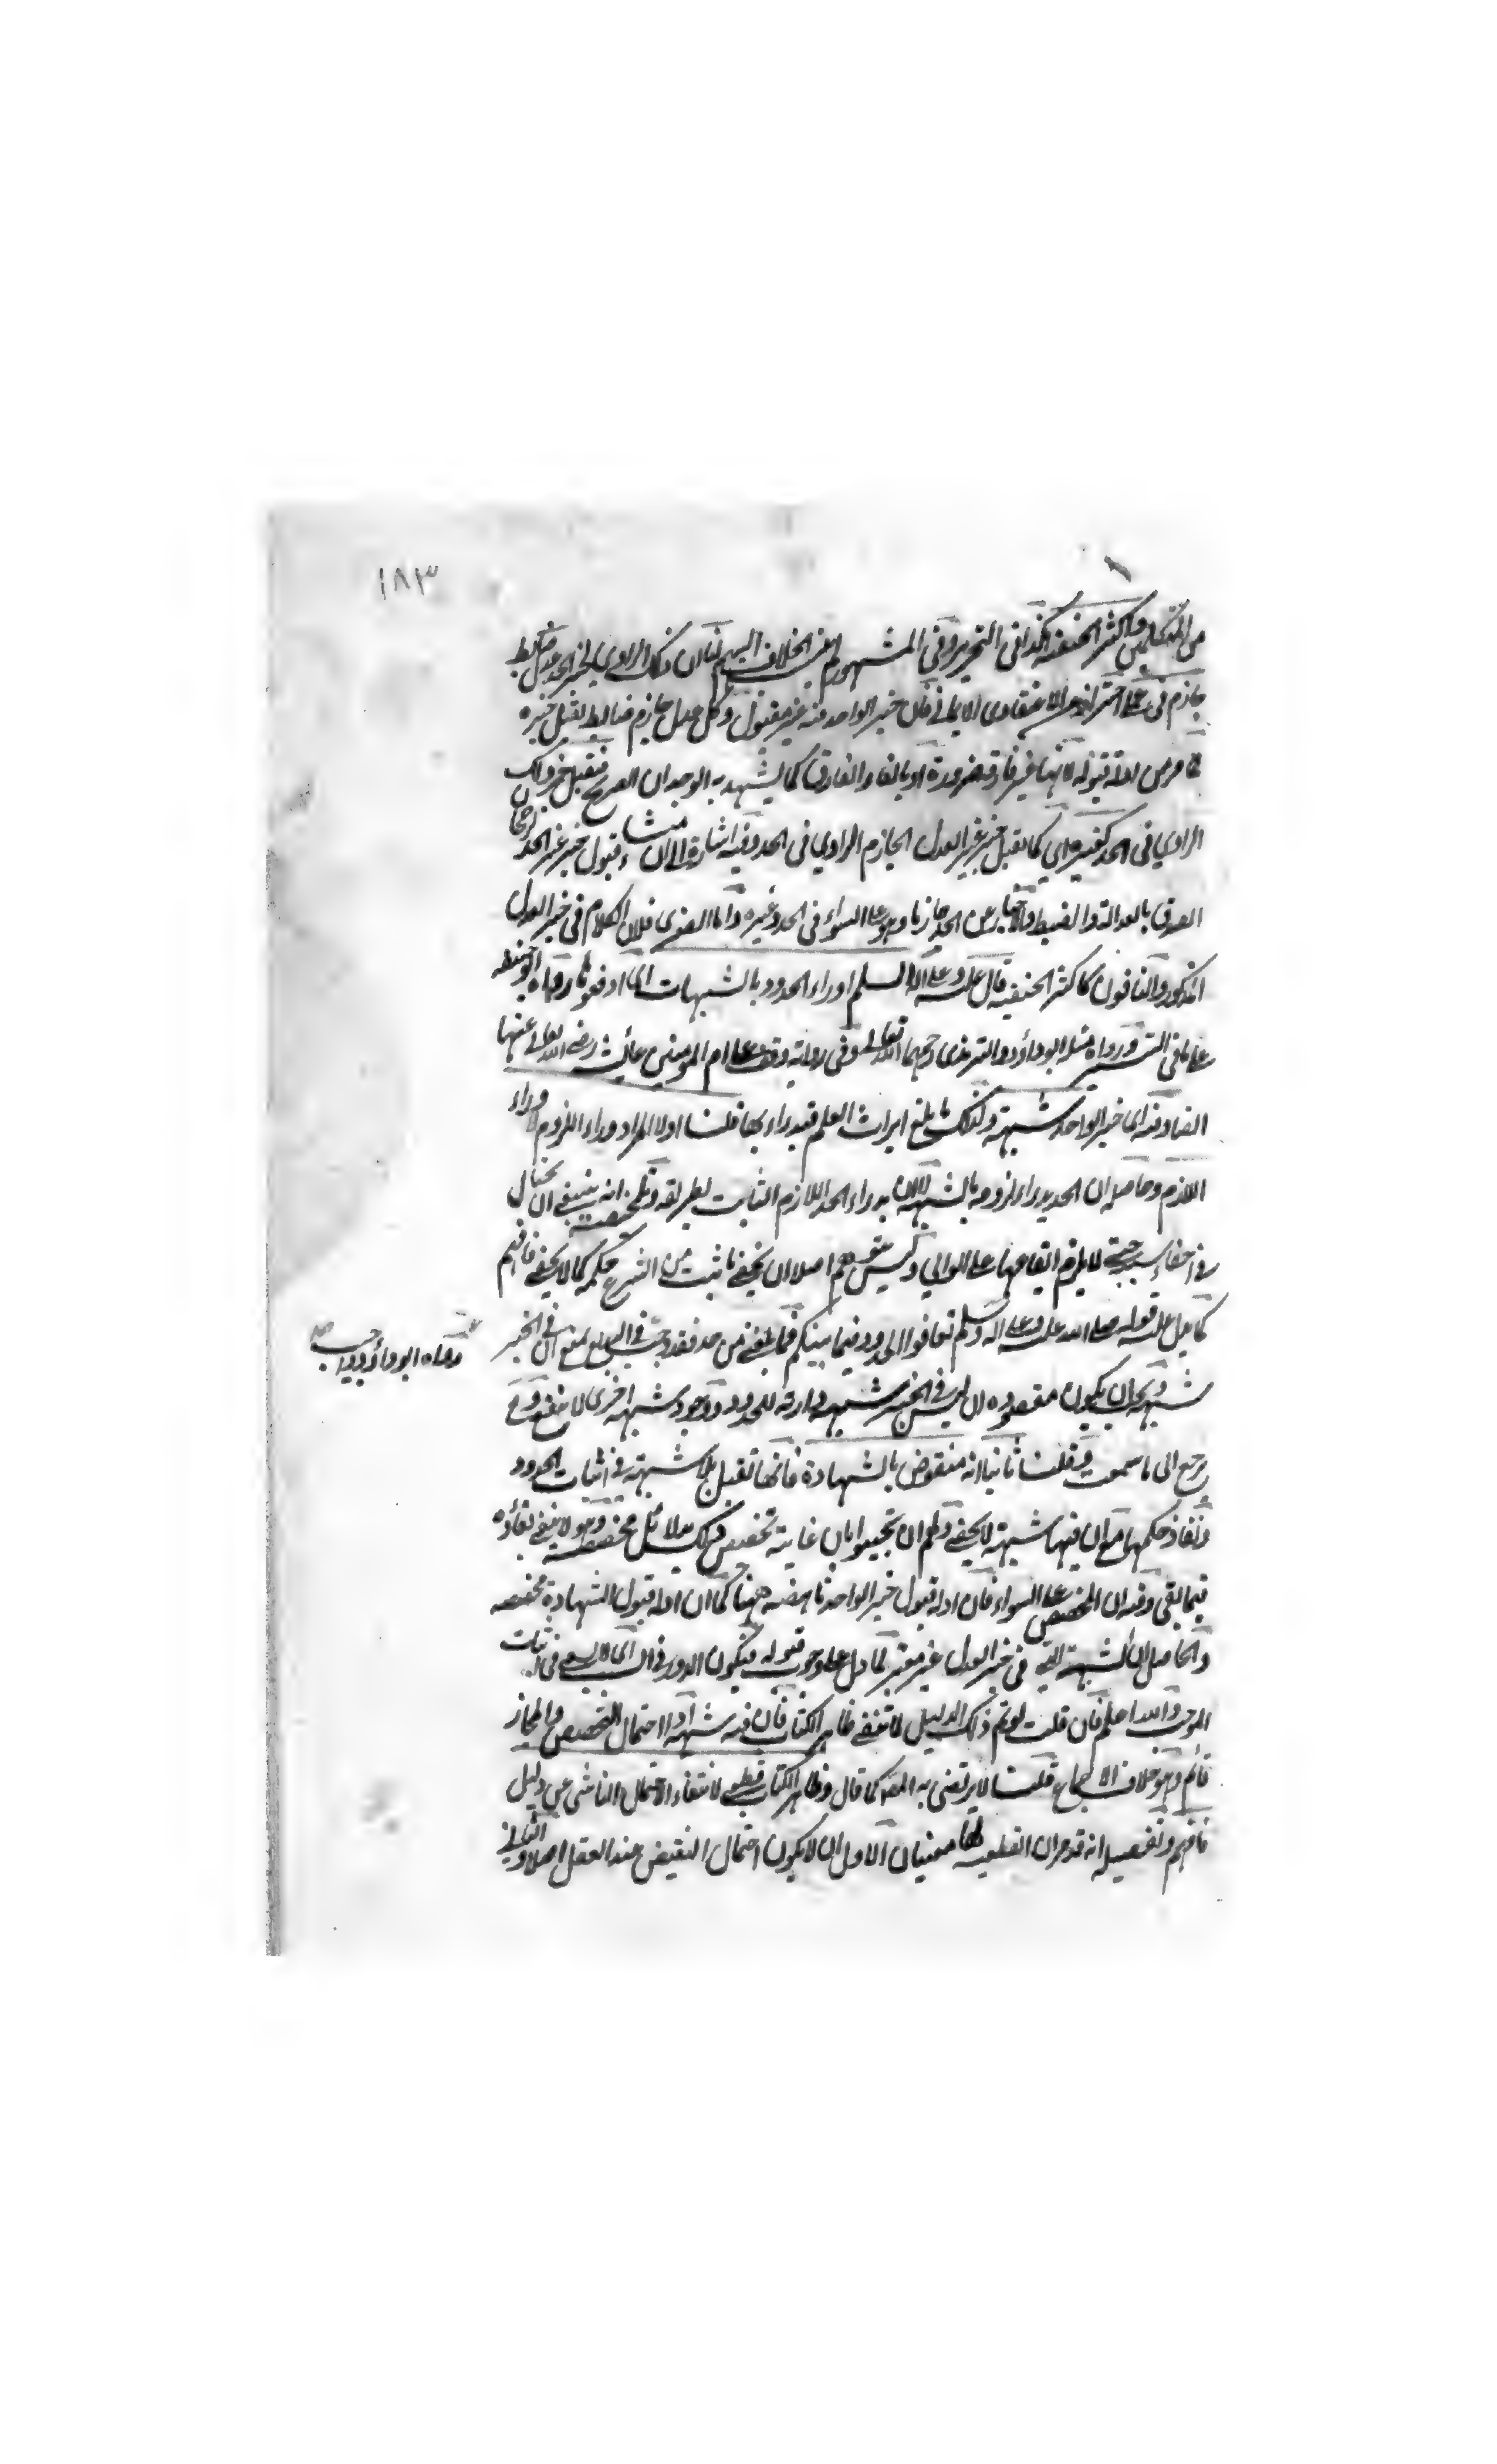 ١٨٣
من المتكلمين واكثر الحنفية كذا في التحرير وفي المشهور نفس الخلاف اليهم لنا ان ذلك الراوي لخبر الحد عدل ضابط
جازم في عملي احتراز عن الاعتقادي الايماني فان خبر الواحد فيه غير مقبول وكل عدل جازم ضابط يقبل خبره
لما مر من ادلة قبوله لانها غير فارقة ضرورة او بالغاء الفارق كما يشهد به الوجدان الصريح فيقبل خبر ذلك
الراوي في الحد كغيره اي كما يقبل خبر غير العدل الجازم الراوي في الحد وفيه اشارة الى ان منشاء قبول خبر غير الحد رجحان
الصدق بالعدالة والضبط والاخبار عن الحد جازما وهو على السواء في الحد وغيره واما الصغرى فلان الكلام في خبر العدل
المذكور والنافون كاكثر الحنفية قال عليه وعلى آله السلام ادراء الحدود بالشبهات اي ادفعوها رواه ابو حنيفة
على ما في التيسير ورواه مثله ابو داؤد والترمذي رحمهما الله تعالى وفي رواية وقف على ام المومنين عائشة رضي الله تعالى عنها
الصلوة وفيه اي خبر الواحد شبهة ولذلك ما بلغ ايراث العلم فيدراء بها قلنا اولا المراد دراء اللزوم لا دراء
اللازم وحاصله ان الحد يدراء لزومه بالشبهة لا ان يدراء الحد اللازم الثابت بطريقه وتلخيصه انه ينبغي ان يحتال
في اخفاء سببه حتى لا يلزم ايقاعها على الوالي وليس معناه اصلا ان يخفى ما ثبت من الشرع حكمه كما لا يخفى فافهم
كما يدل عليه قوله صلى الله عليه وعلى اله وسلم تعافوا الحدود فيما بينكم فما بلغني من حد فقد وجب في السابع بمنع ان في الخبر
شبهة ويجوز ان يكون مقصوده ان ليس في الخبر شبهة دارئة للحدود ووجود شبهة اخرى لا ينفع وح
يرجع الى ما سمعت وقلنا ثانيا انه منقوض بالشهادة فانها تقبل بلا شبهة في اثبات الحدود
ونفاذ حكمها مع ان فيها شبهة لا يخفى ولهم ان يجيبوا بان غاية تخصيص ذلك بدلائل مخصصة وهو لا ينفي نفاذه
فيما بقي وفيه ان المخصص على السواء فان ادلة قبول خبر الواحد ناهضة ههنا كما ان ادلة قبول الشهادة مخصصة
والحاصل ان الشبهة التي في خبر العدل غير معتبر لما دل على وجوب قبوله فيكون الدور في السبب اي لا يسعى في اثبات
الموجب والله اعلم فان قلت لو تم ذلك الدليل لانتفى ظاهر الكتاب فان فيه شبهة اذ احتمال التخصيص والمجاز
قائم وهو خلاف الاجماع قلت لا يرتضى به المص كما قال وظاهر الكتاب قطعي لانتفاء الاحتمال الناشي عن دليل
فافهم وتفصيله انه قد مر ان القطعي لها معنيان الاول ان لا يكون احتمال النقيض عند العقل اصلا والثاني
رواه ابو داؤد